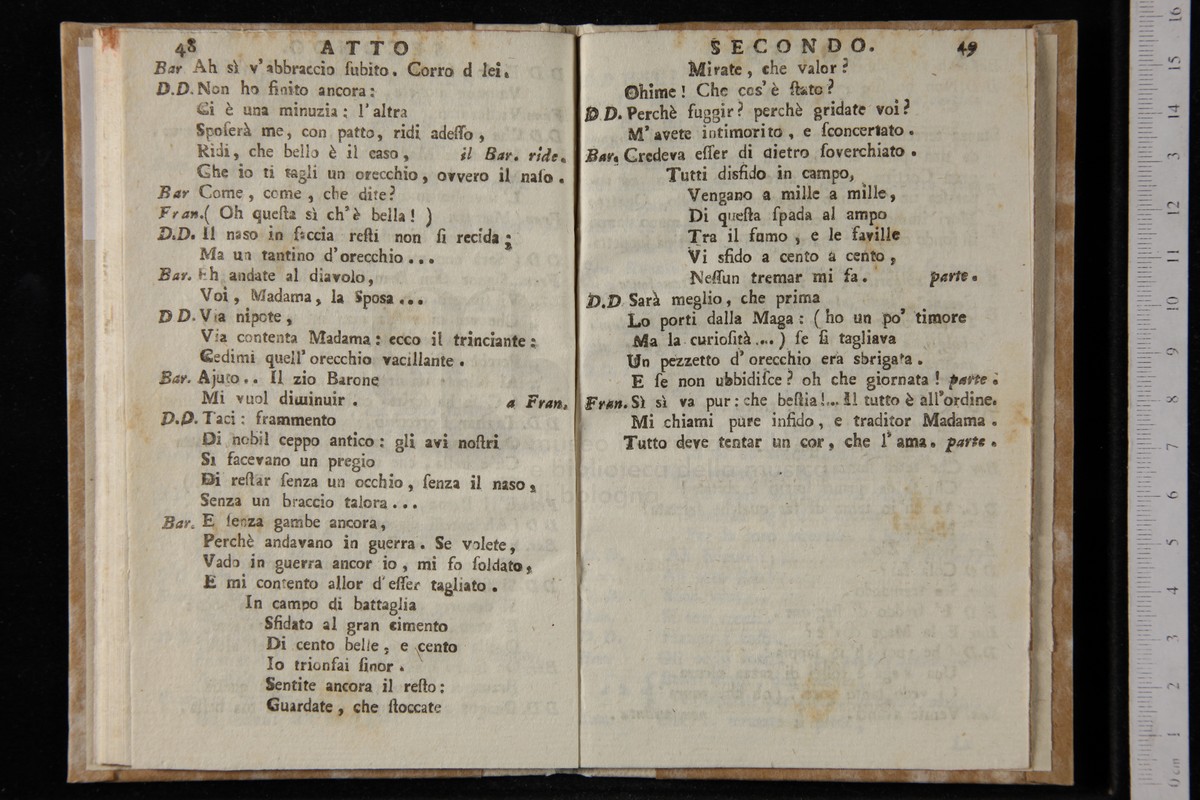 48 ATTO
Bar Ah sì v'abbraccio ſubito. Corro d lei.
D.D. Non ho finito ancora:
Ci è una minuzia: l'altra
Spoſerà me, con patto, ridi adeſſo,
Ridi, che bello è il caso, il Bar. ride.
Che io ti tagli un orecchio, ovvero il naſo.
Bar Come, come, che dite?
Fran. (Oh queſta sì ch'è bella!)
D.D. Il naso in faccia reſti non ſi recida;
Ma un tantino d'orecchio...
Bar. Eh andate al diavolo,
Voi, Madama, la Sposa...
D D. Via nipote,
Via contenta Madama: ecco il trinciante:
Cedimi quell'orecchio vacillante.
Bar. Ajuto.. Il zio Barone
Mi vuol diminuir. a Fran.
D.D. Taci: frammento
Di nobil ceppo antico: gli avi noſtri
Si facevano un pregio
Di reſtar ſenza un occhio, ſenza il naso,
Senza un braccio talora...
Bar. E ſenza gambe ancora,
Perchè andavano in guerra. Se volete,
Vado in guerra ancor io, mi fo ſoldato,
E mi contento allor d'eſſer tagliato.
In campo di battaglia
Sfidato al gran cimento
Di cento belle, e cento
Io trionfai ſinor.
Sentite ancora il reſto:
Guardate, che ſtoccate
SECONDO. 49
Mirate, che valor?
Ohime! Che cos'è ſtato?
D D. Perchè fuggir? perchè gridate voi?
M'avete intimorito, e ſconcertato.
Bar. Credeva eſſer di dietro ſoverchiato.
Tutti disfido in campo,
Vengano a mille a mille,
Di queſta ſpada al ampo
Tra il fumo, e le faville
Vi sfido a cento a cento,
Neſſun tremar mi fa. parte.
D.D Sarà meglio, che prima
Lo porti dalla Maga: (ho un po' timore
Ma la curioſità....) ſe ſi tagliava
Un pezzetto d'orecchio era sbrigata.
E ſe non ubbidiſce? oh che giornata! parte.
Fran. Sì sì va pur: che beſtia!... Il tutto è all'ordine.
Mi chiami pure infido, e traditor Madama.
Tutto deve tentar un cor, che l'ama. parte.
museo
e biblioteca della musica
di bologna